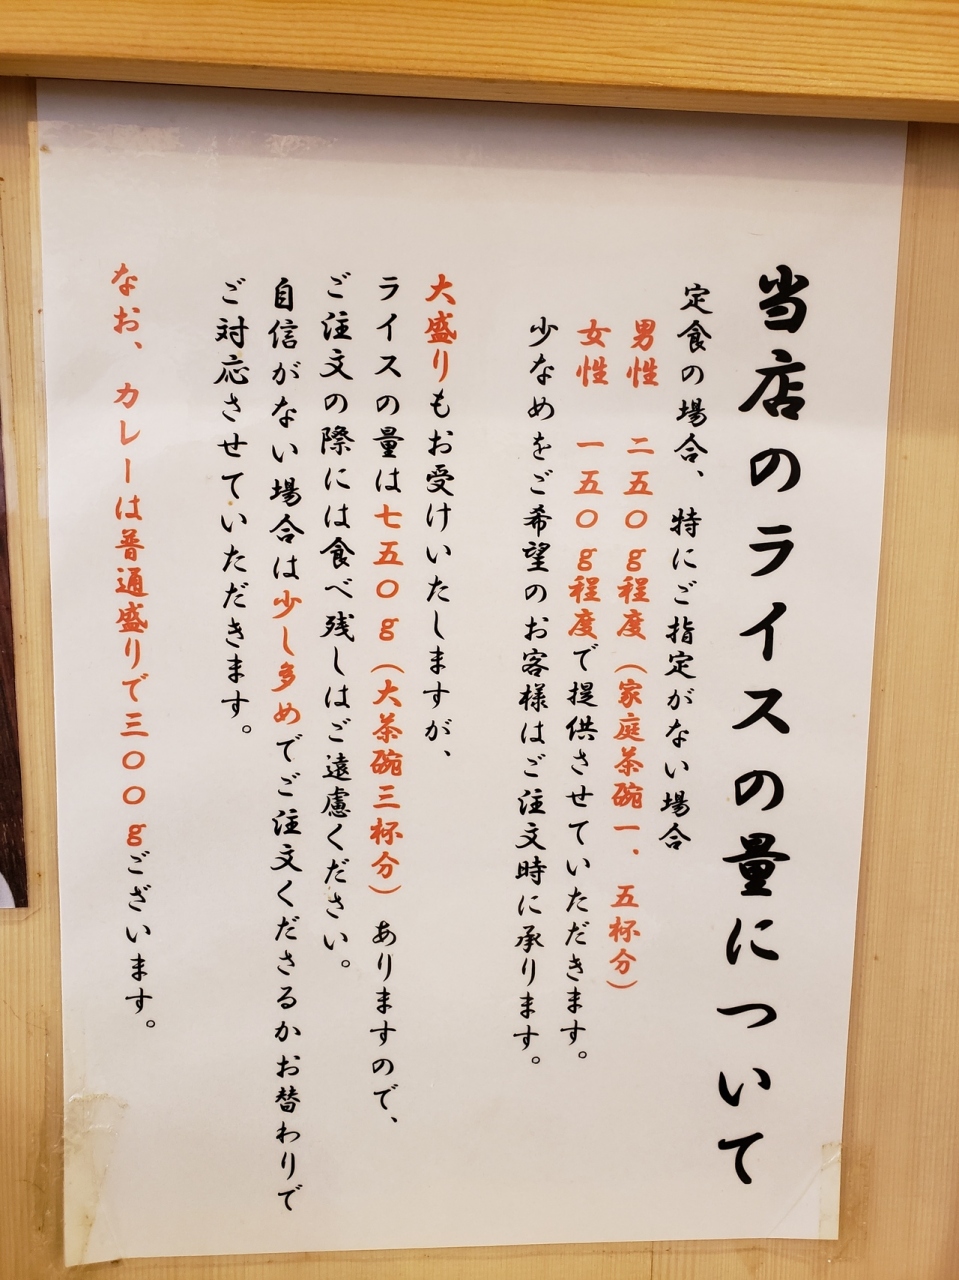 当店のライスの量について
定食の場合、特にご指定がない場合
男性　二五〇ｇ程度（家庭茶碗一．五杯分）
女性　一五〇ｇ程度で提供させていただきます。
少なめをご希望のお客様はご注文時に承ります。
大盛りもお受けいたしますが、
ライスの量は七五〇ｇ（大茶碗三杯分）ありますので、
ご注文の際には食べ残しはご遠慮ください。
自信がない場合は少し多めでご注文くださるかお替わりで
ご対応させていただきます。
なお、カレーは普通盛りで三〇〇ｇございます。